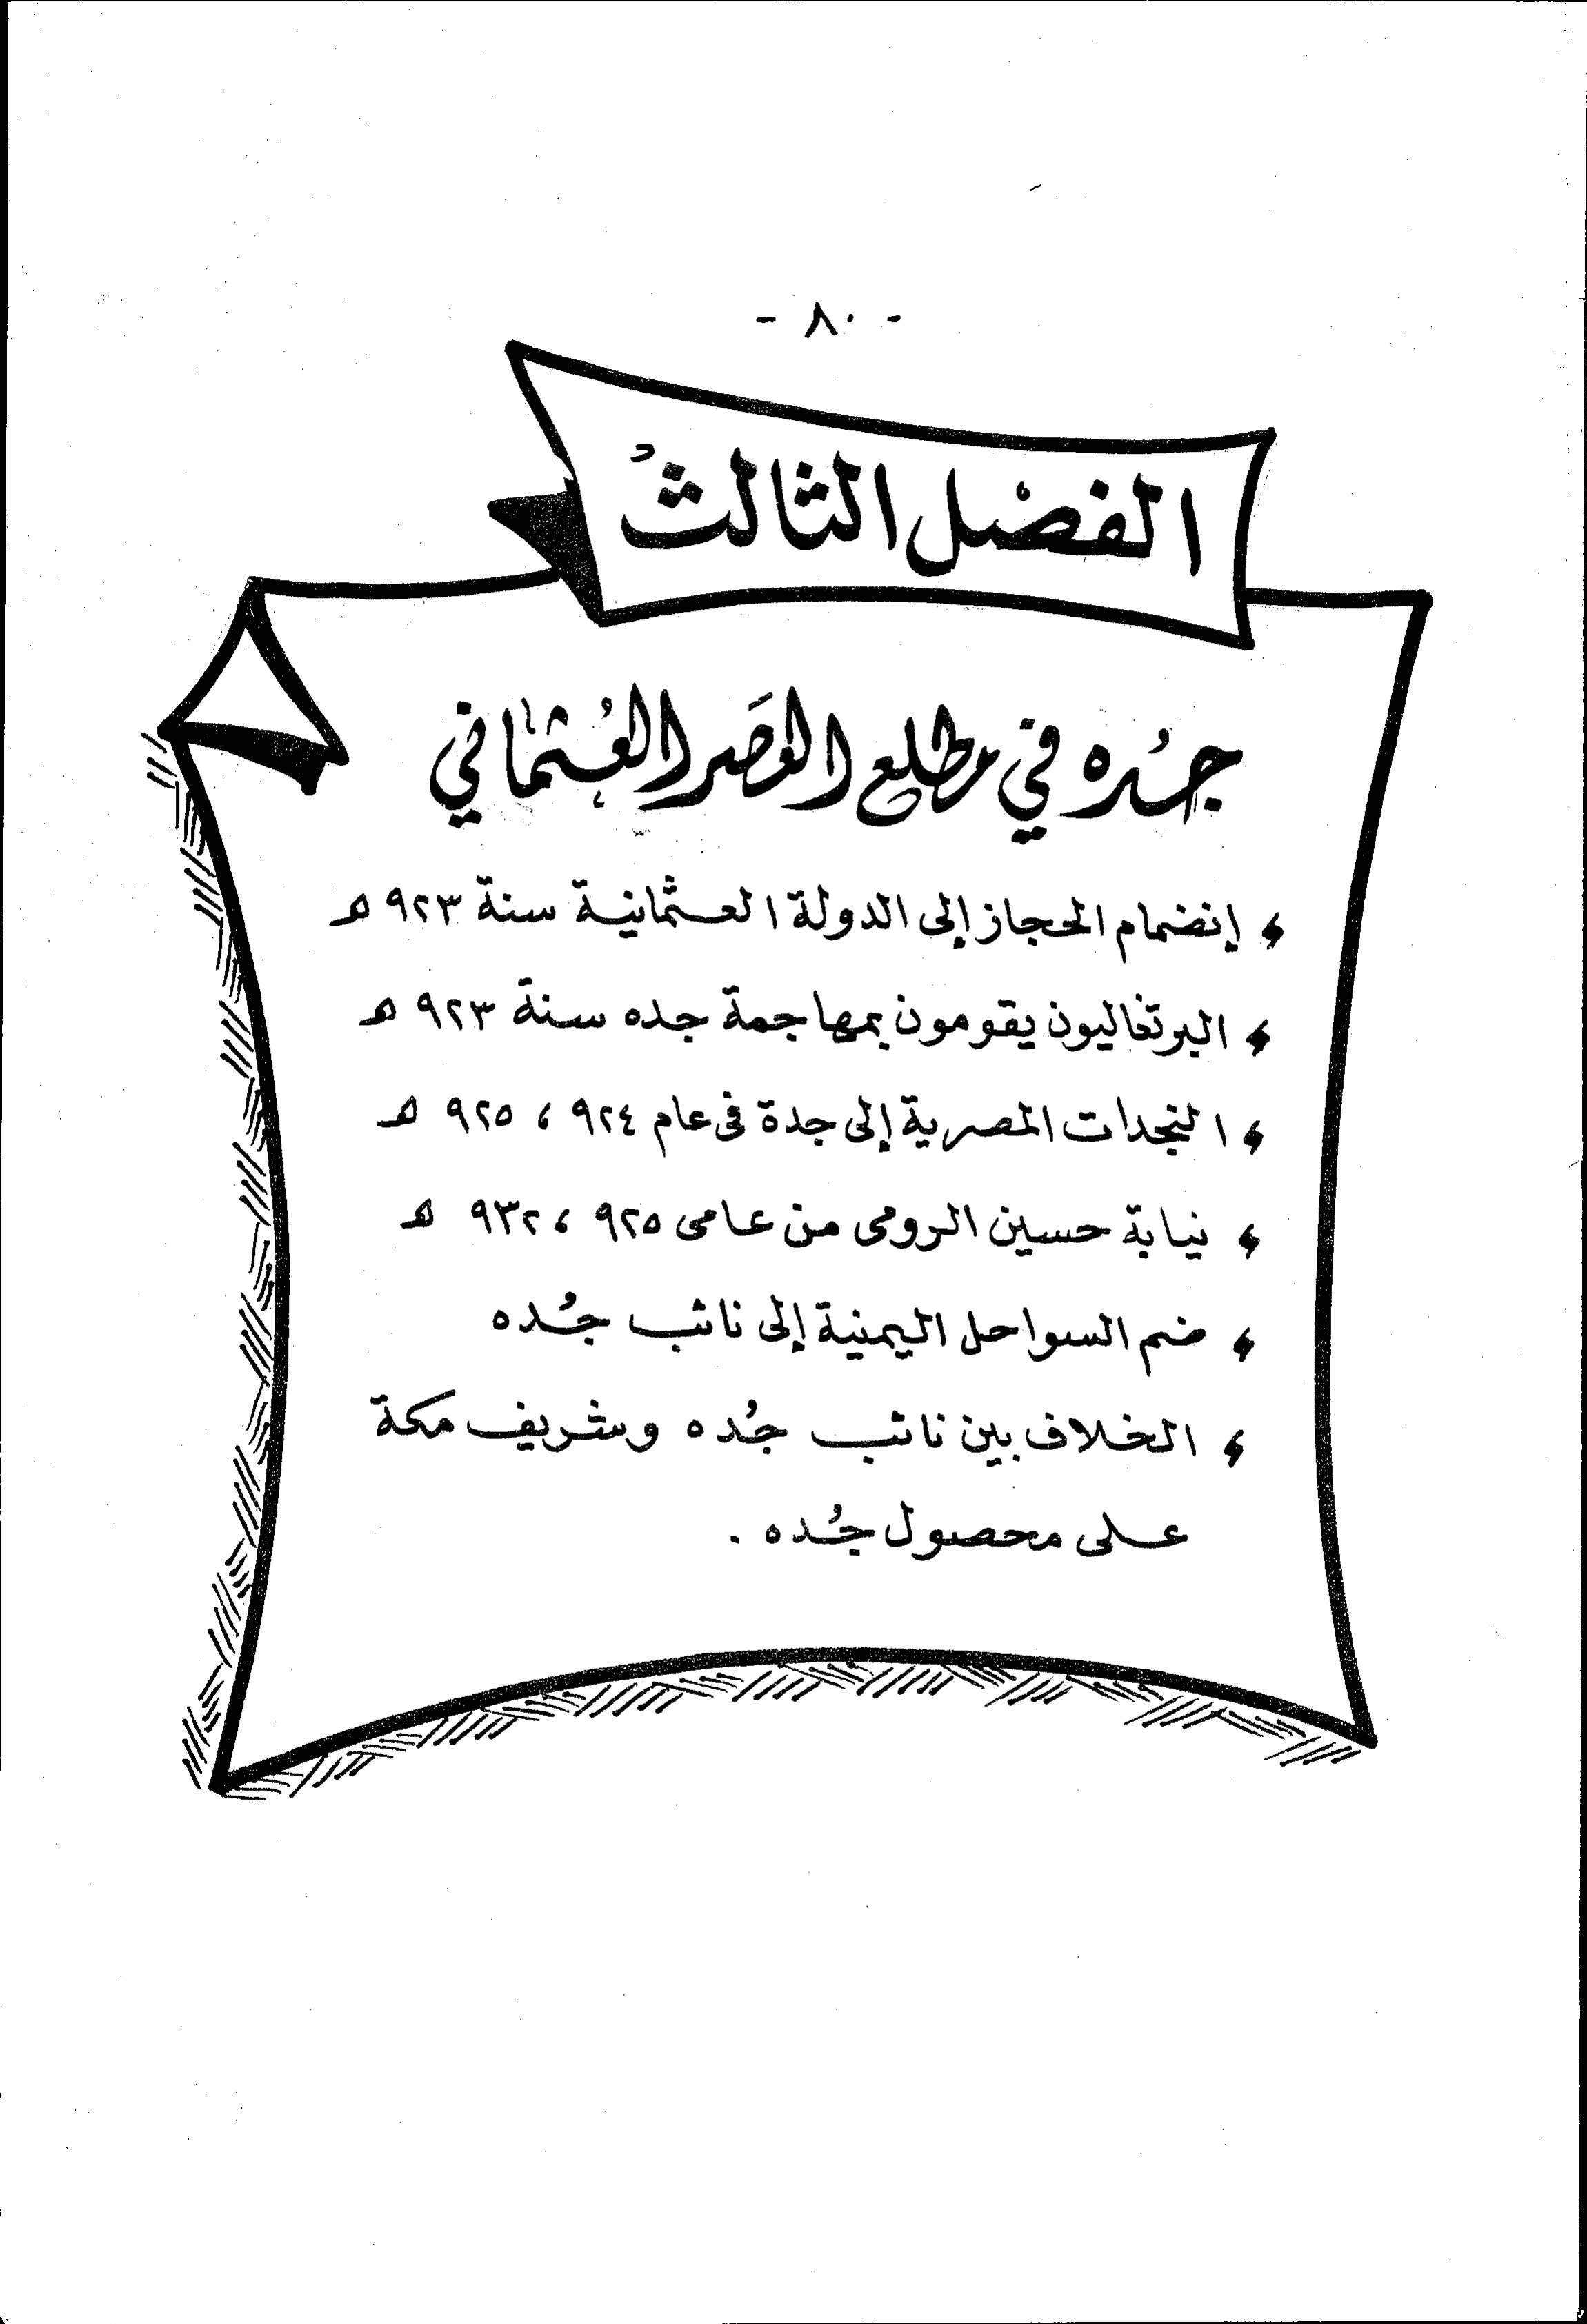 - ٨٠ -
الفصل الثالث
جُده في مطلع العَصر العُثماني
إنضمام الحجاز إلى الدولة العثمانية سنة ٩٢٣ هـ
البرتغاليون يقومون بمهاجمة جده سنة ٩٢٣ هـ
النجدات المصرية إلى جدة فى عام ٩٢٤ ، ٩٢٥ هـ
نيابة حسين الرومى من عامى ٩٢٥ ، ٩٣٢ هـ
ضم السواحل اليمنية إلى نائب جُده
الخلاف بين نائب جُده وشريف مكة
على محصول جُده .